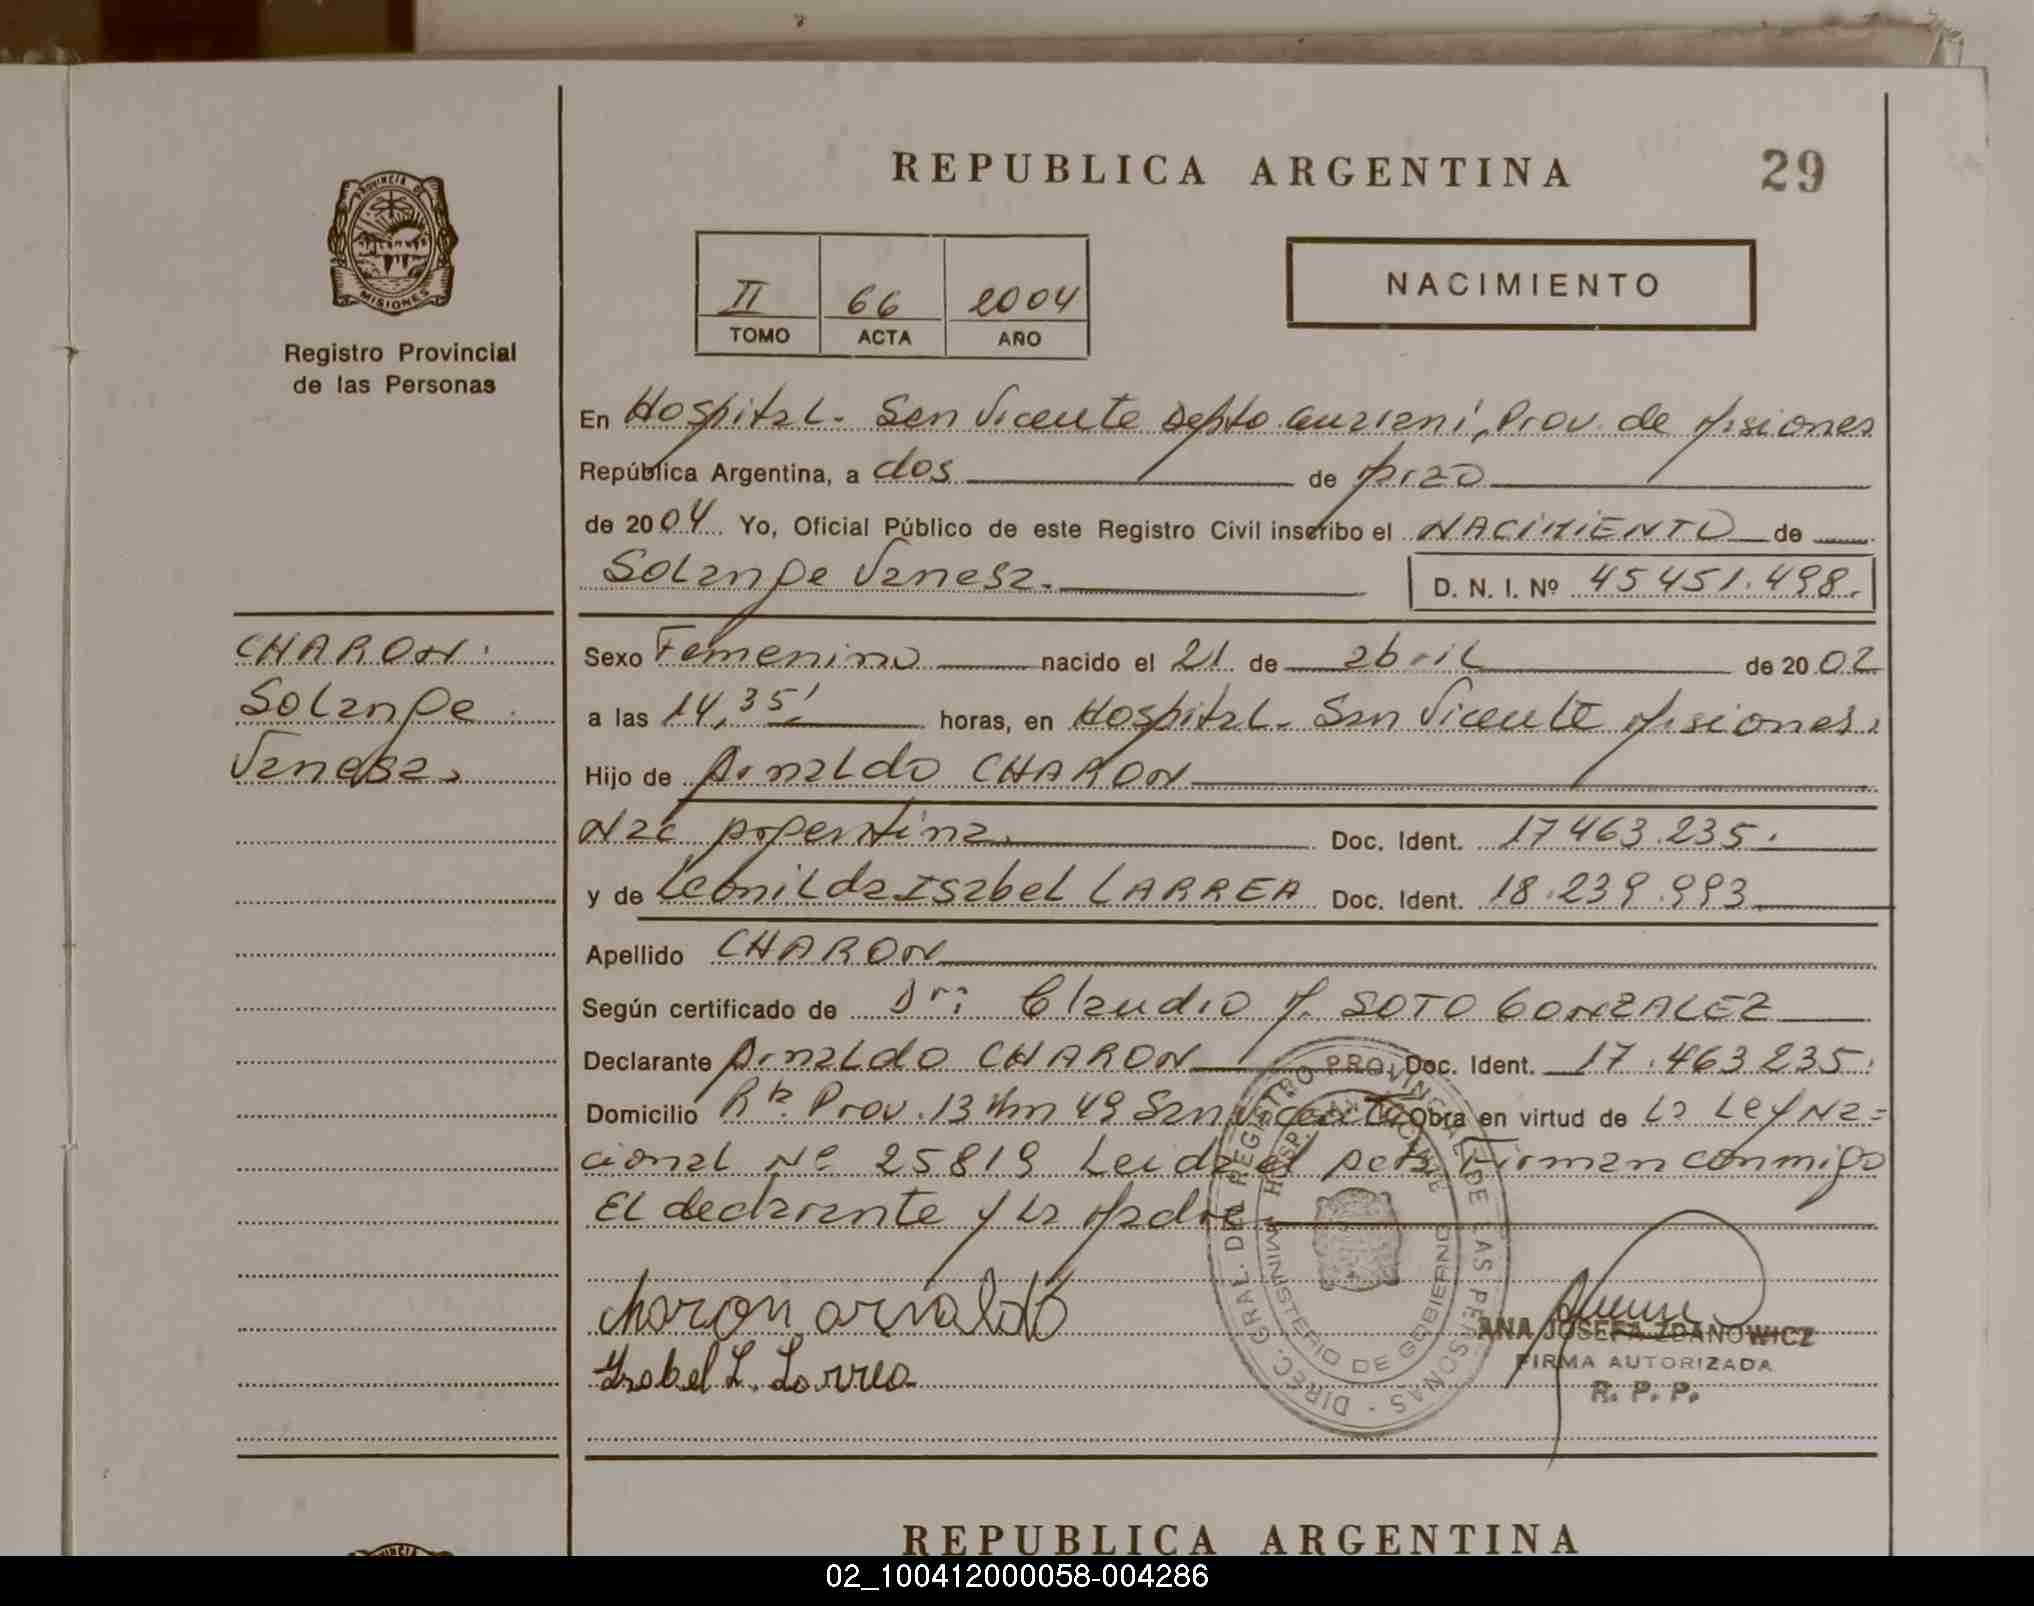 REPUBLICA ARGENTINA
29
PROVINCIA DE
MISIONES
Registro Provincial
de las Personas
II 66 2004
TOMO ACTA AÑO
NACIMIENTO
En Hospital - San Vicente Depto Guaraní, Prov. de Misiones
República Argentina, a dos de Marzo
de 2004 Yo, Oficial Público de este Registro Civil inscribo el NACIMIENTO de
Solange Vanesa. D. N. I. Nº 45451.498.
CHARON:
Solange
Vanesa.
Sexo Femenino nacido el 21 de abril de 2002
a las 14,35 horas, en Hospital - San Vicente Misiones.
Hijo de Arnaldo CHARON
Nac Argentina. Doc. Ident. 17463.235.
y de Leonilda Isabel LARREA Doc. Ident. 18.239.993
Apellido CHARON
Según certificado de Dr: Claudio M. SOTO GONZALEZ
Declarante Arnaldo CHARON Doc. Ident. 17.463 235.
Domicilio Rta. Prov. 13 Km 49 San Vicente Obra en virtud de La Ley Na=
cional Nº 25819 Leida el acta Firman conmigo
El declarante y la Madre
DIREC. GRAL. DEL REGISTRO PROVINCIAL DE LAS PERSONAS -
MINISTERIO DE GOBIERNO
HOSP. SAN VICENTE
Charon arnaldo
Isabel L. Larrea
ANA JOSEFA ZDANOWICZ
FIRMA AUTORIZADA
R. P. P.
REPUBLICA ARGENTINA
02_100412000058-004286